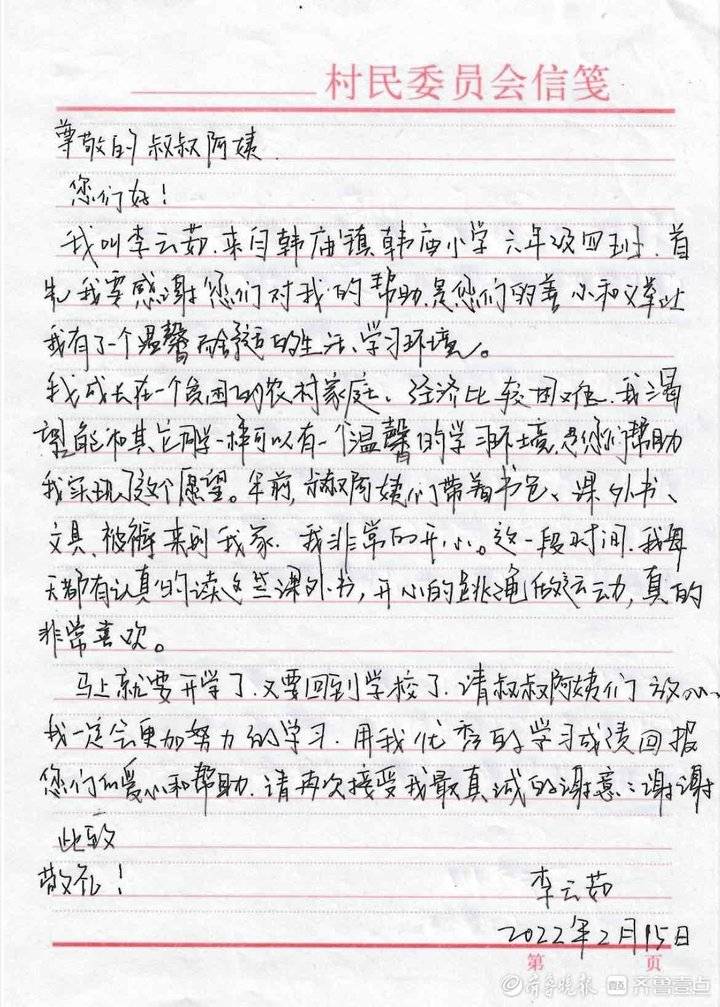 村民委员会信笺
尊敬的叔叔阿姨.
您们好!
我叫李云茹.来自韩庙镇韩庙小学六年级四班.首
先我要感谢您们对我的帮助.是您们的善心和义举让
我有了一个温馨而舒适的生活、学习环境。
我成长在一个贫困的农村家庭、经济比较困难.我渴
望能和其它同学一样可以有一个温馨的学习环境.是您们帮助
我实现了这个愿望。年前,叔叔阿姨们带着书包、课外书、
文具、被褥来到我家.我非常的开心。这一段时间.我每
天都有认真的读这些课外书,开心的跳绳做运动,真的
非常喜欢。
马上就要开学了.又要回到学校了.请叔叔阿姨们放心、
我一定会更加努力的学习.用我优秀的学习成绩回报
您们的爱心和帮助.请再次接受我最真诚的谢意:谢谢
此致
敬礼!
李云茹
2022年2月15日
第 页
齐鲁晚报 齐鲁壹点